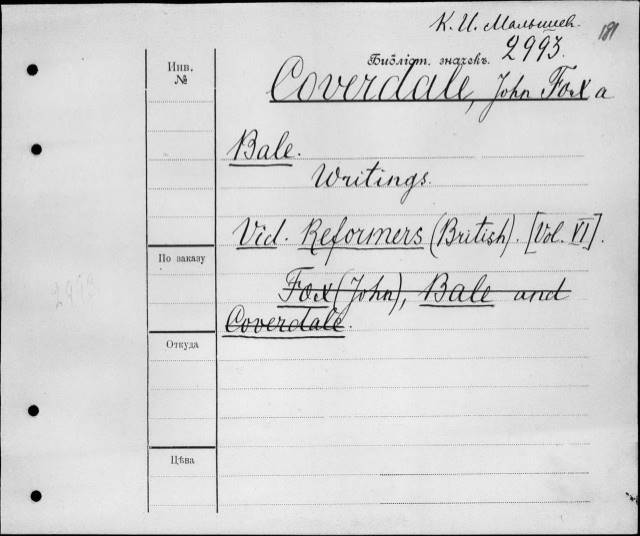 К. И. Малышев.
181
Библіот. значекъ. 2993.
Инв.
№
Coverdale, John Fox a
Bale.
Writings.
Vid. Reformers (British). [Vol. VI].
По заказу
2993
Fox (John), Bale and
Coverdale.
Откуда
Цѣна